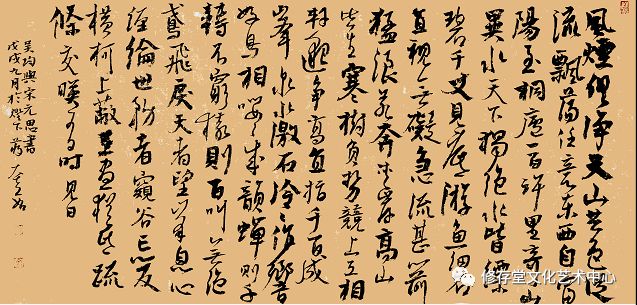 風煙俱淨天山共色從
流飄蕩任意東西自富
陽至桐廬一百許里奇山
異水天下獨絕水皆縹
碧千丈見底游魚細石
直視無礙急流甚箭
猛浪若奔夾岸高山
皆生寒樹負勢競上互相
軒邈爭高直指千百成
峯泉水激石泠泠作響
好鳥相嚶嚶成韻蟬則千
轉不窮猿則百叫無絕
鳶飛戾天者望峯息心
經綸世務者窺谷忘反
橫柯上蔽在晝猶昏疏
條交映有時見日
吴均與宋元思書
戊戌九月於燈下
修存堂文化艺术中心